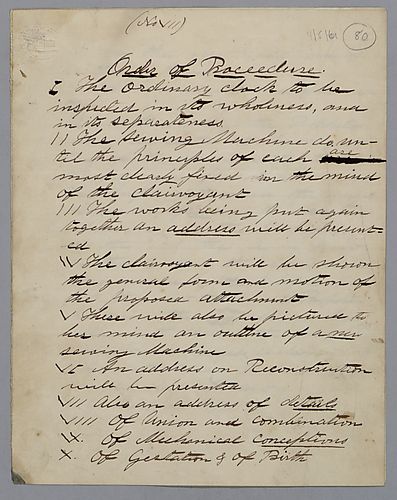 (No VII)
4/5/61
80
Order of Proceedure.
I The ordinary clock to be
inspected in its wholeness, and
in its separateness
II The Sewing Machine do, un-
til the principles of each are
most clearly fixed in the mind
of the clairvoyant
III The works being put again
together an address will be present-
ed
IV The clairvoyant will be shown
the general form and motion of
the proposed attachment
V There will also be pictured to
her mind an outline of a new
sewing Machine
VI An address on Reconstruction
will be presented
VII Also an address of details
VIII Of Union and combination
IX. Of Mechanical conceptions
X. Of Gestation & of Birth